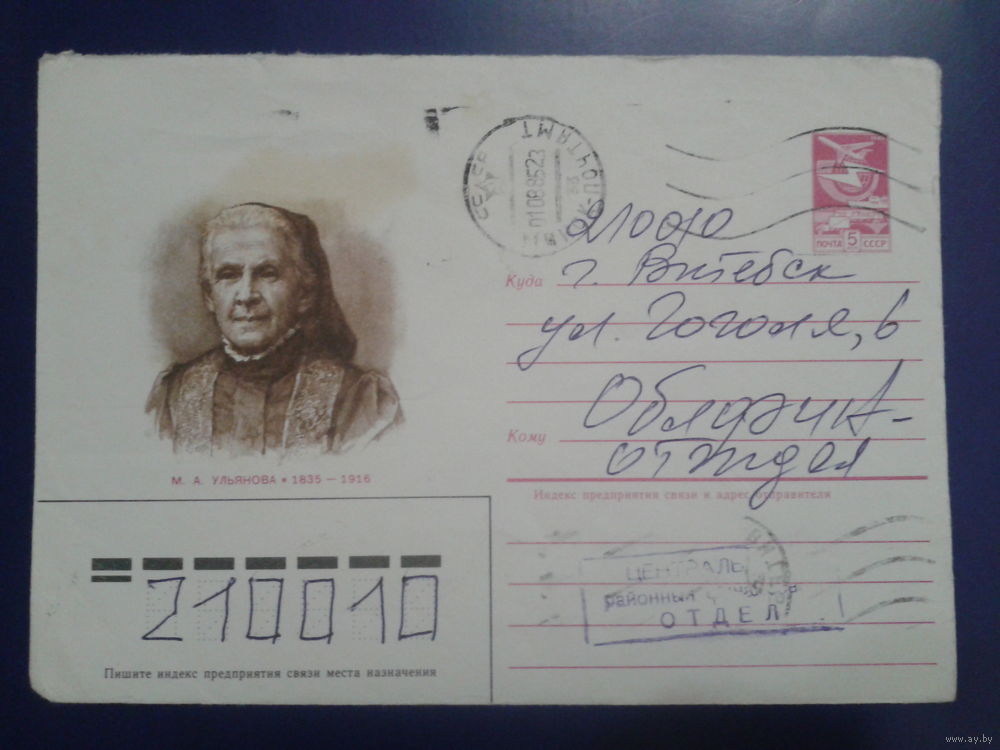 ПОЧТАМТ
01088523
ПОЧТА 5 СССР
210010
Куда г. Витебск
ул. Гоголя, 6
Кому Облфин-
отдел
М. А. УЛЬЯНОВА • 1835 – 1916
Индекс предприятия связи и адрес отправителя
ЦЕНТРАЛЬ
районный
ОТДЕЛ
210010
Пишите индекс предприятия связи места назначения
www.ay.by